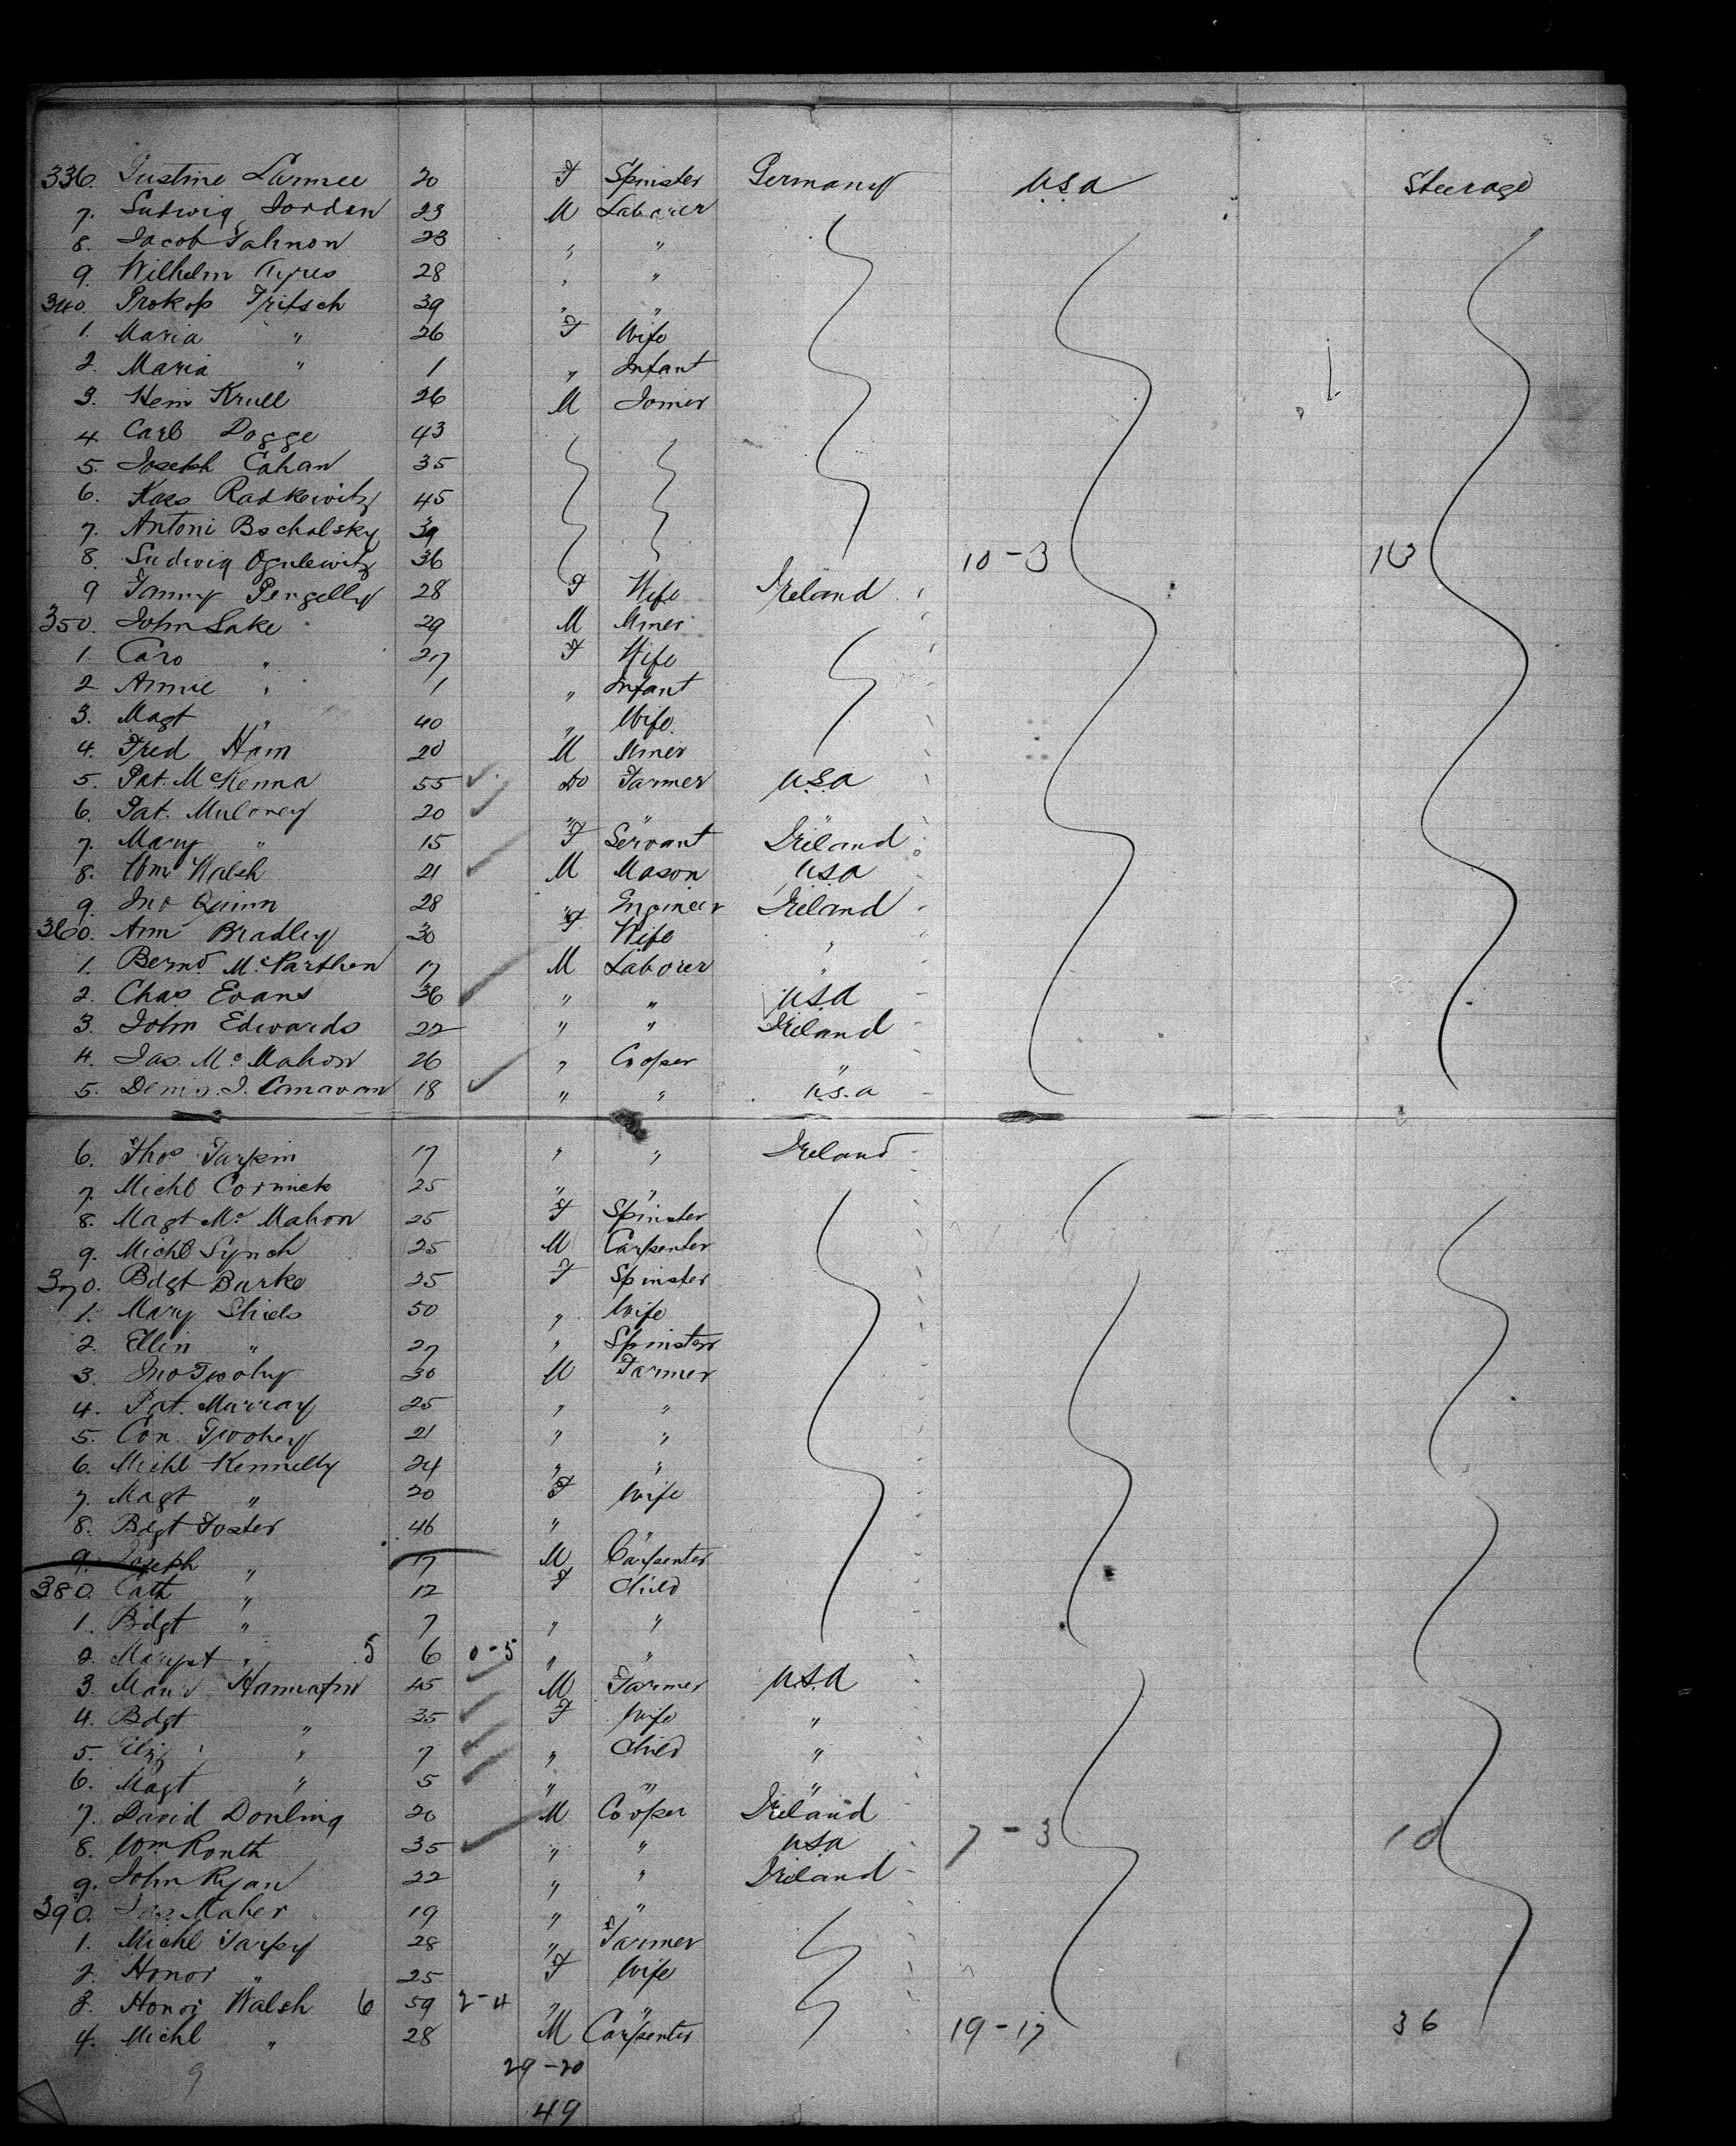 336. Justine Larmee 20 F Spinster Germany U.S.A Steerage
7. Ludwig Jordan 23 M Laborer
8. Jacob Talmon 23 " "
9. Wilhelm 28 " "
340. Prokop Fritsch 39 " "
1. Maria " 26 F Wife
2. Maria " 1 " Infant
3. Hein Krull 26 M Joiner
4 Carl Dogge 43
5. Joseph Cahan 35
6. Radkewitz 45
7. Antoni Bschalsky 39
8. Ludwig Ogulewitz 36 10-3 13
9 Fanny Pengelly 28 F Wife Ireland
350. John Lake 29 M Miner
1. Caro " 27 F Wife
2 Annie " 1 " Infant
3. Magt " 40 " Wife
4. Fred Ham 20 M Miner
5. Pat. McKenna 55 ✓ Do Farmer U.S.A
6. Pat. Muloney 20 ✓ " " "
7. Mary " 15 F Servant Ireland
8. Wm Walsh 21 ✓ M Mason U.S.A
9. Jno Quinn 28 " Engineer Ireland
360. Ann Bradley 30 F Wife "
1. Bernd McParthen 17 M Laborer "
2. Chas Evans 36 ✓ " " U.S.A
3. John Edwards 22 " " Ireland
4. Jas. McMahon 26 " Cooper "
5. Denis. J. Canavan 18 ✓ " " U.S.A
6. Thos 17 " " Ireland
7. Michl Cormick 25 " "
8. Magt McMahon 25 F Spinster
9. Michl Lynch 25 M Carpenter
370. Bdgt Burke 25 F Spinster
1. Mary Shiels 50 " Wife
2. Ellin " 27 " Spinster
3. Jno Twohy 30 M Farmer
4. Pat. Murray 25 " "
5. Con Twohey 21 " "
6. Michl Kennelly 24 " "
7. Magt " 20 F Wife
8. Bdgt Foster 46 " "
9. Joseph " 17 M Carpenter
380. Cath " 12 F Child
1. Bdgt " 7 " "
2. " 5 6 0-5 " "
3. Hannafin 45 ✓ M Farmer U.S.A
4. Bdgt " 35 ✓ F Wife "
5. Eliz " 7 ✓ " Child "
6. Magt " 5 ✓ " " "
7. David Dowling 20 M Cooper Ireland
8. Wm Routh 35 ✓ " " U.S.A 7-3 10
9. John Ryan 22 " " Ireland
390. Jas. Maher 19 " "
1. Michl Tarpey 28 " Farmer
2. Honor " 25 F Wife
3. Honor Walsh 6 59 2-4 " "
4. Michl " 28 M Carpenter 19-17 36
9 29-20
49